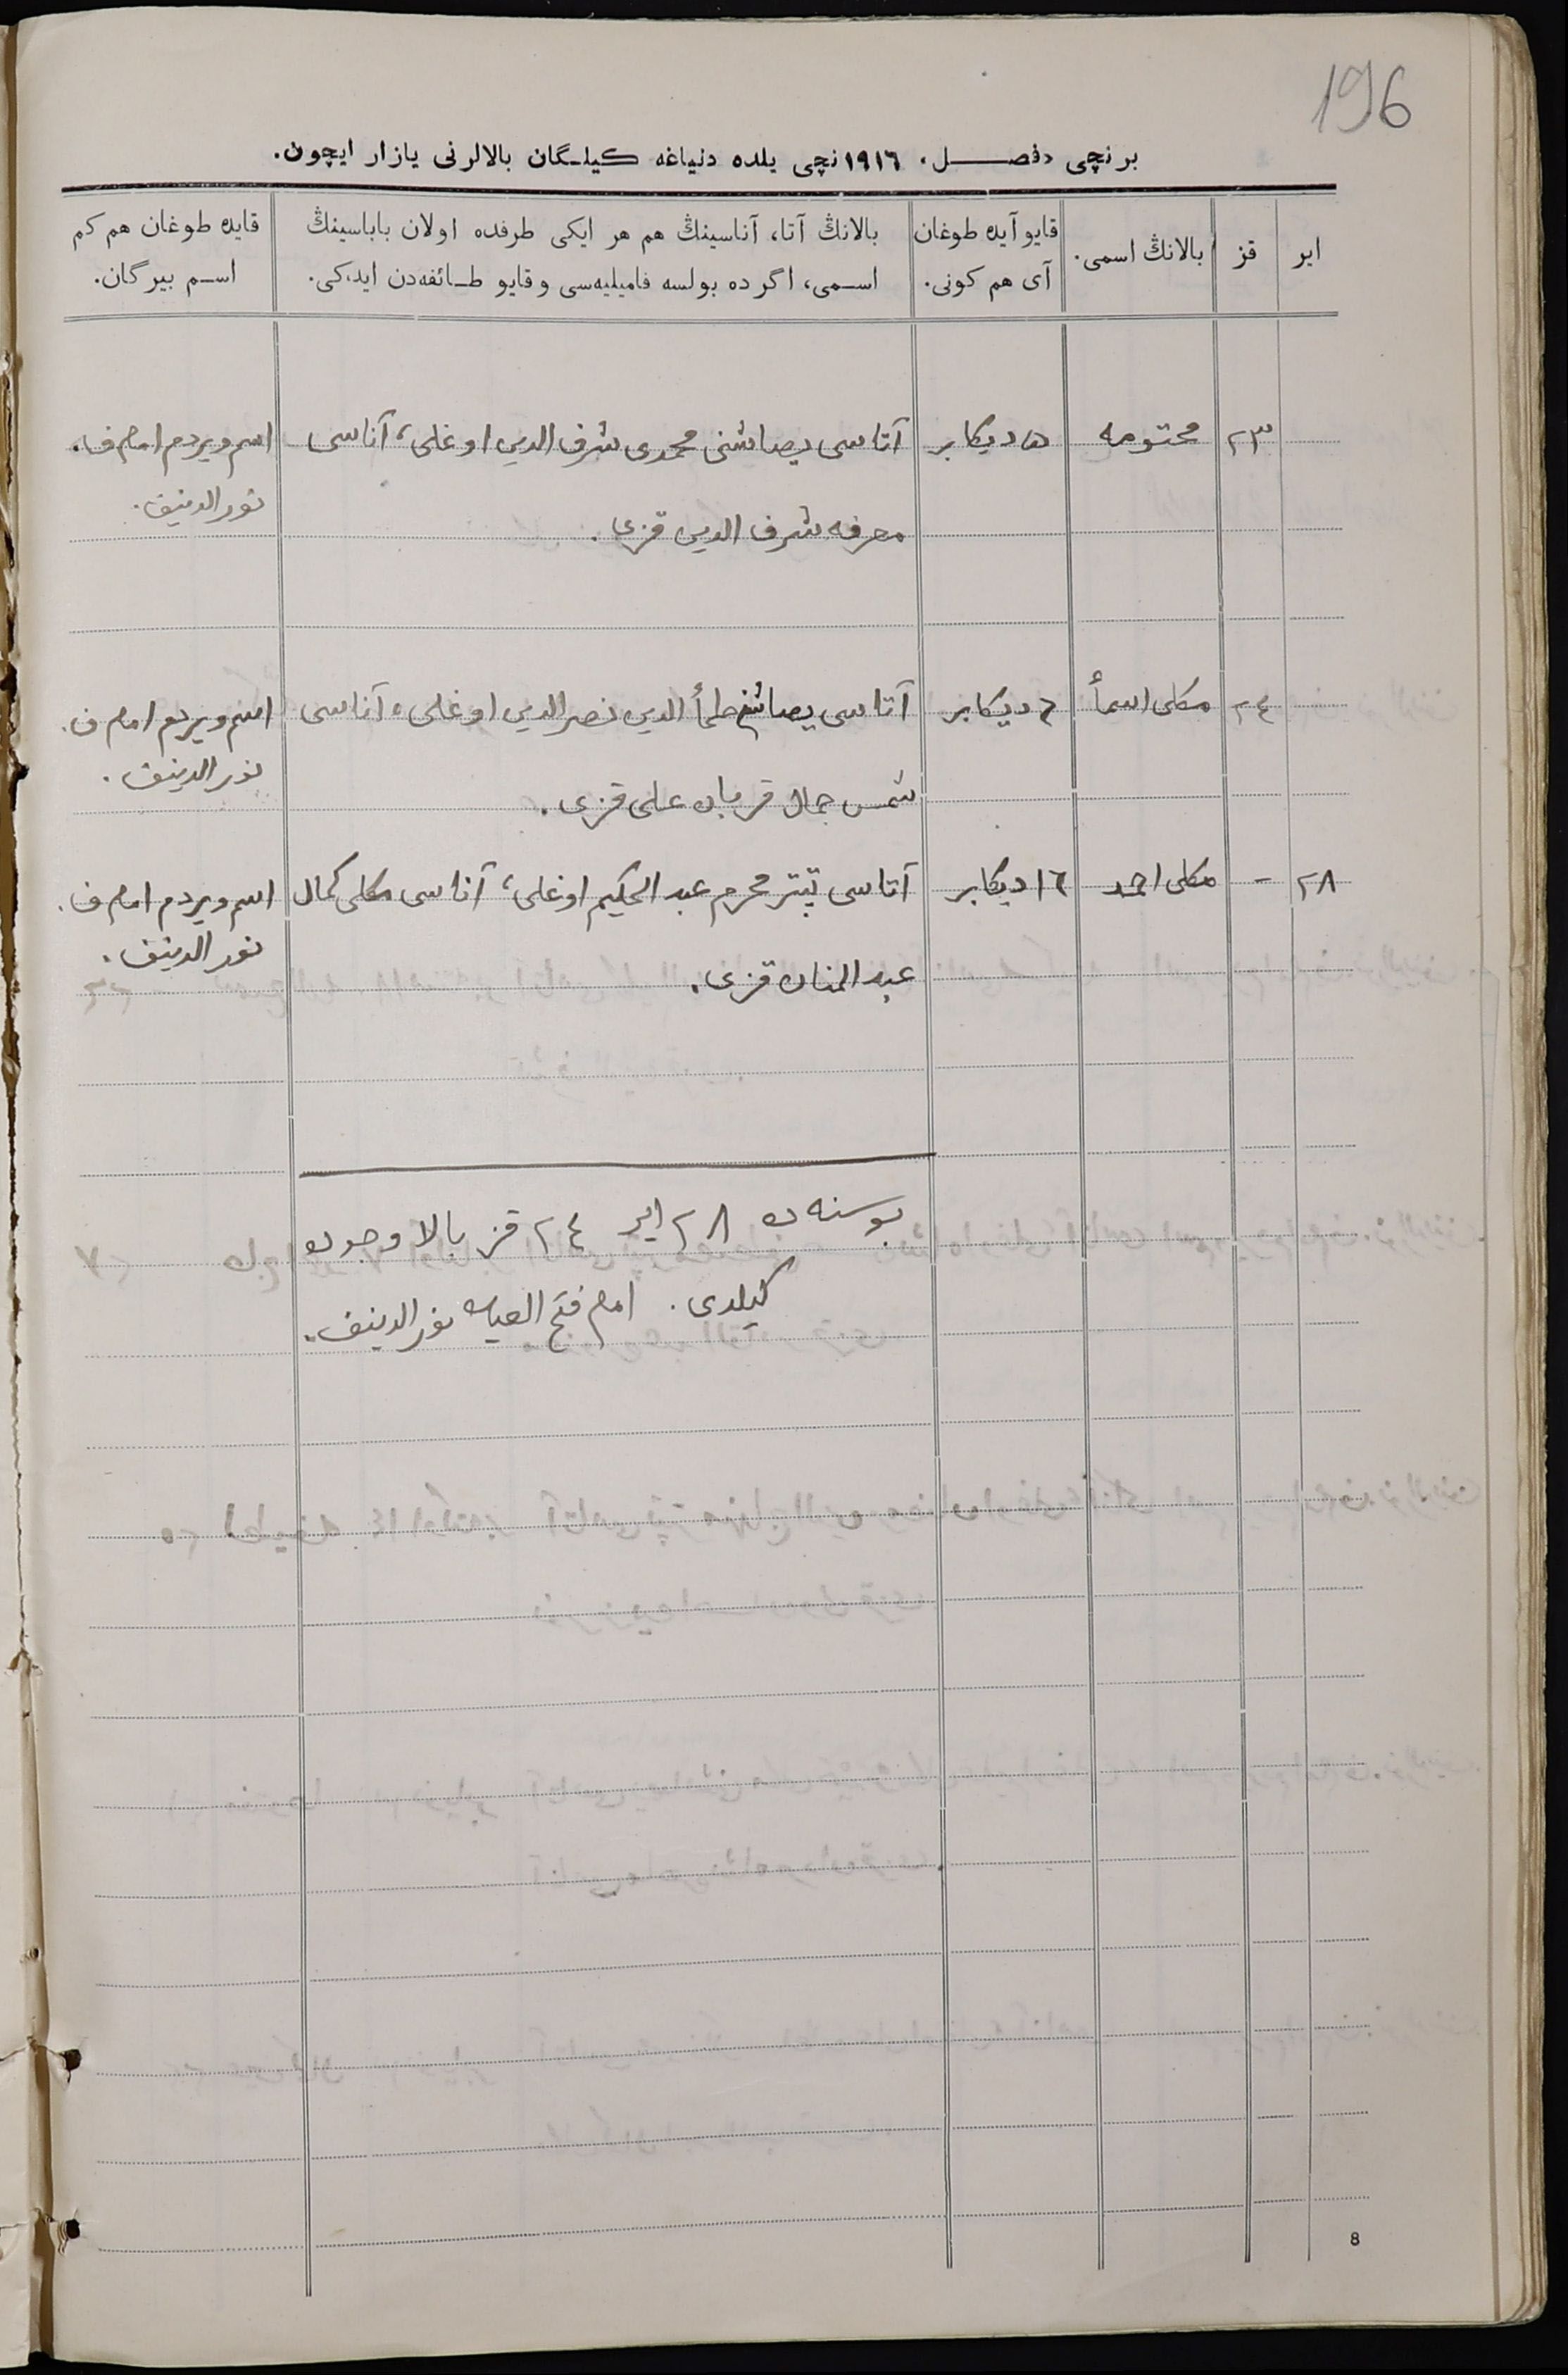 196
برنچی «فصل» ١٩١٦نچی یلده دنیاغه کیلگان بالالرنی یازار ایچون.
ایر
قز
بالانڭ اسمی.
قایو آیده طوغان
آی هم کونی.
بالانڭ آتا، آناسینڭ هم هر ایکی طرفده اولان باباسینڭ
اسمی، اگر ده بولسه فامیلیه‌سی و قایو طائفه‌دن ایدکی.
قایده طوغان هم کم
اسم بیرگان.
٢٣ محتومه دیکابر آتاسی محمدی شرف الدین اوغلی، آناسی اسم ویردم امام ف.
نور الدینف.
معرفه شرف الدین قزی.
٢٤ مکلی اسمأ ٦ دیکابر آتاسی الدین نصر الدین اوغلی، آناسی اسم ویردم امام ف.
نور الدینف.
شمس جمال قربان علی قزی.
٢٨ - مکلی احمد ١٦ دیکابر آتاسی تپتر محرم عبد الحکیم اوغلی، آناسی مکلی کمال اسم ویردم امام ف.
نور الدینف.
عبد المنان قزی.
بو سنه ده ٢٨ ایر ٢٤ قز بالا وجوده
کیلدی. امام فتح نور الدینف.
8